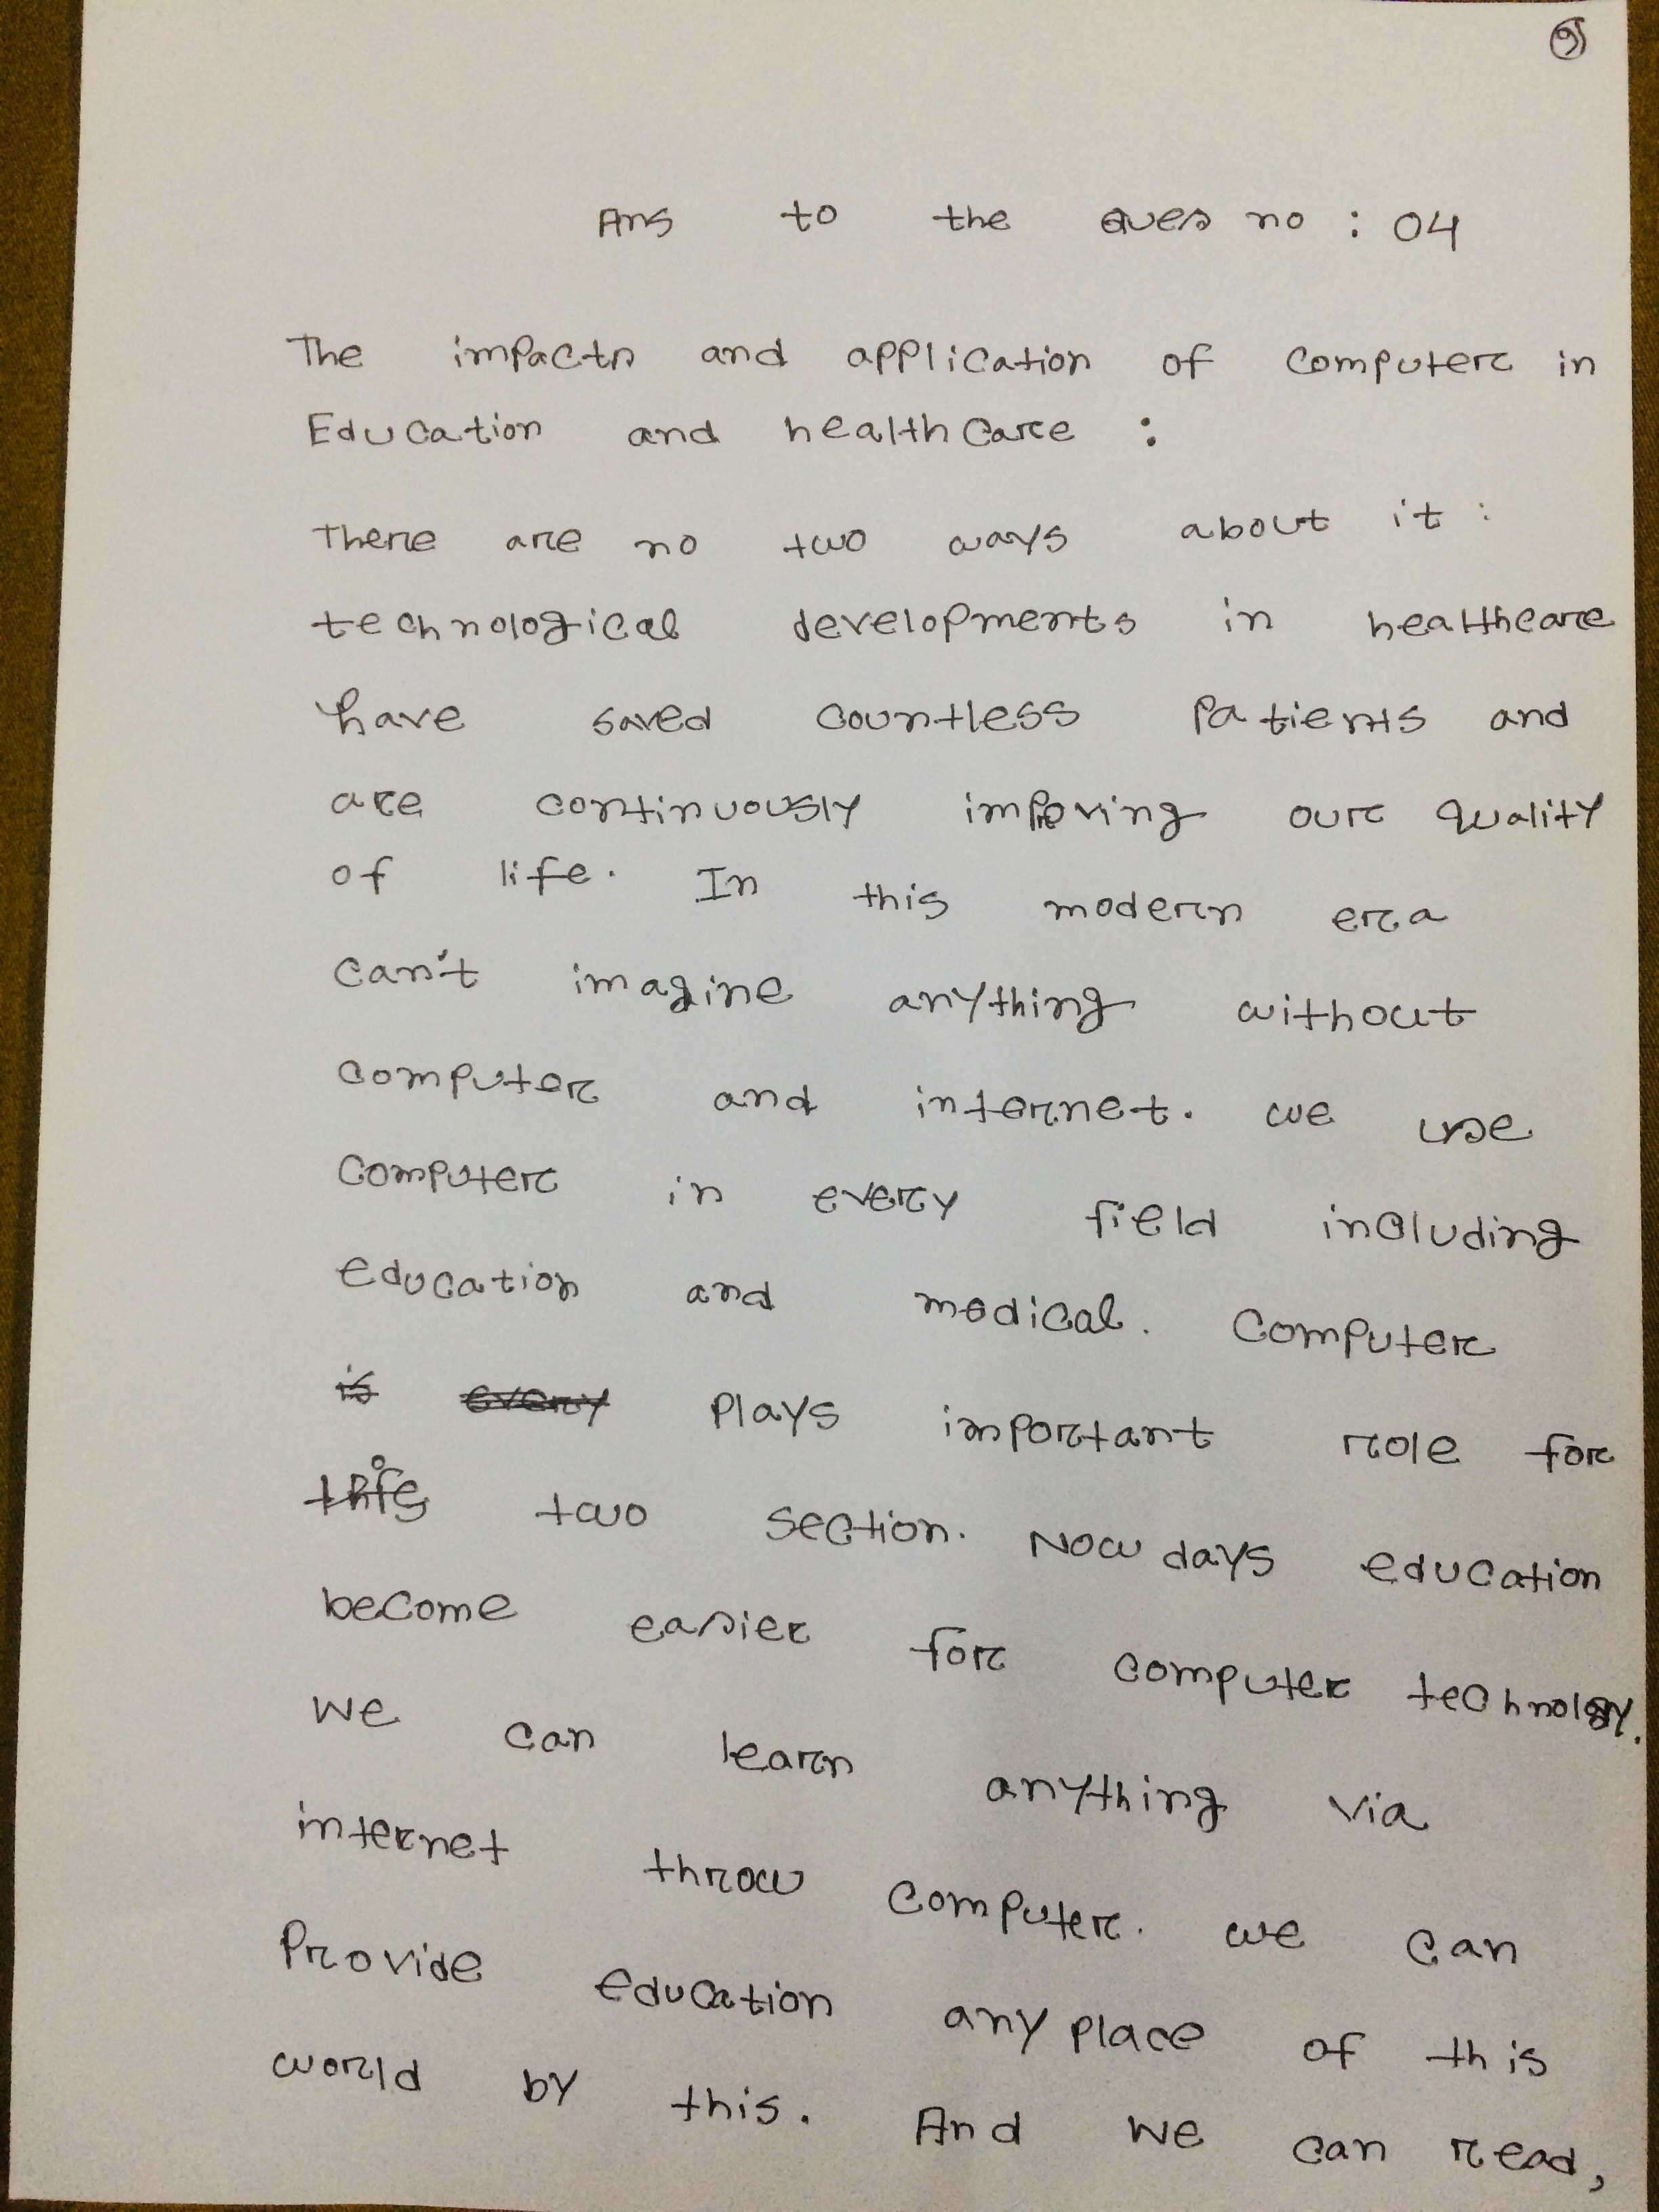 Ans to the Ques no : 04
The impacts and application of computer in
Education and healthcare :
There are no two ways about it :
technological developments in healthcare
have saved countless patients and
are continuously improving our quality
of life. In this modern era
can't imagine anything without
computer and internet. we use
computer in every field including
education and medical. Computer
is every plays important role for
this two section. Now days education
become easier for computer technology.
We can learn anything via
internet throw computer. we can
Provide education any place of this
world by this. And we can read,